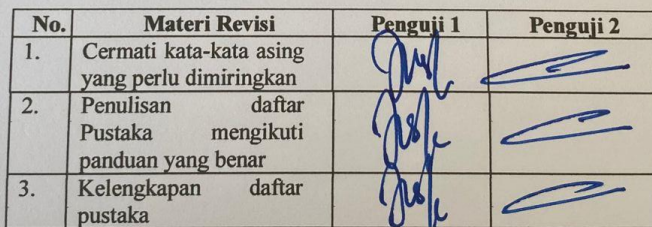 No. Materi Revisi Penguji 1 Penguji 2
1. Cermati kata-kata asing
yang perlu dimiringkan
2. Penulisan daftar
Pustaka mengikuti
panduan yang benar
3. Kelengkapan daftar
pustaka